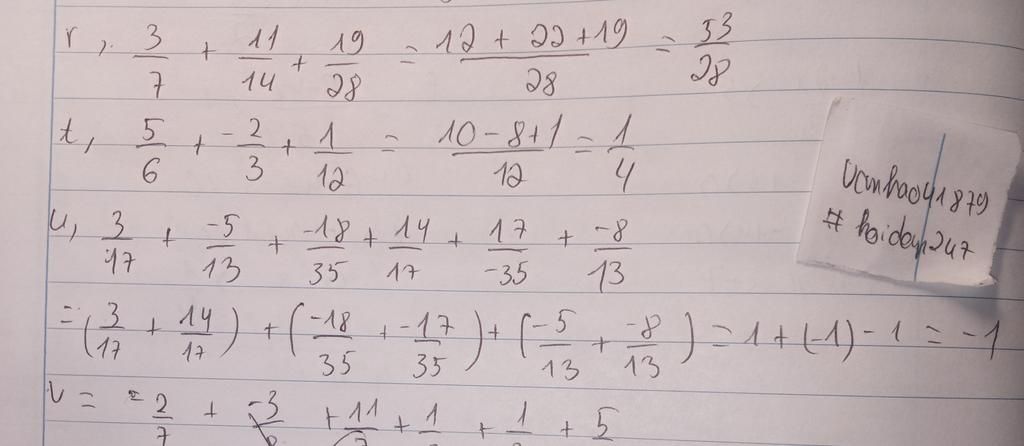 r, 3/7 + 11/14 + 19/28 = (12 + 22 + 19)/28 = 53/28
t, 5/6 + -2/3 + 1/12 = (10 - 8 + 1)/12 = 1/4
u, 3/17 + -5/13 + -18/35 + 14/17 + 17/-35 + -8/13
= (3/17 + 14/17) + (-18/35 + -17/35) + (-5/13 + -8/13) = 1 + (-1) - 1 = -1
v = -2/7 + -3 + 11 + 1 + 1 + 5
# hoidap247